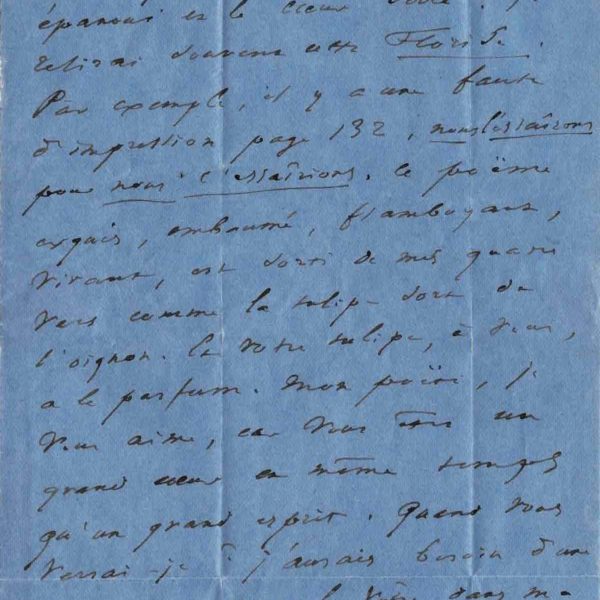 épanoui et le cœur
relirai souvent cette Floris.
Par exemple, il y a une faute
d'impression page 132, nous l'essaîrons
pour nous l'essaîrions. Ce poëme
exquis, embaumé, flamboyant,
vivant, est sorti de mes quatre
vers comme la tulipe sort de
l'oignon. Et votre tulipe, à vous,
a le parfum. Mon poëte, je
vous aime, car vous êtes un
grand cœur en même temps
qu'un grand esprit. Quand vous
verrai-je ? j'aurais besoin d'une
dans ma